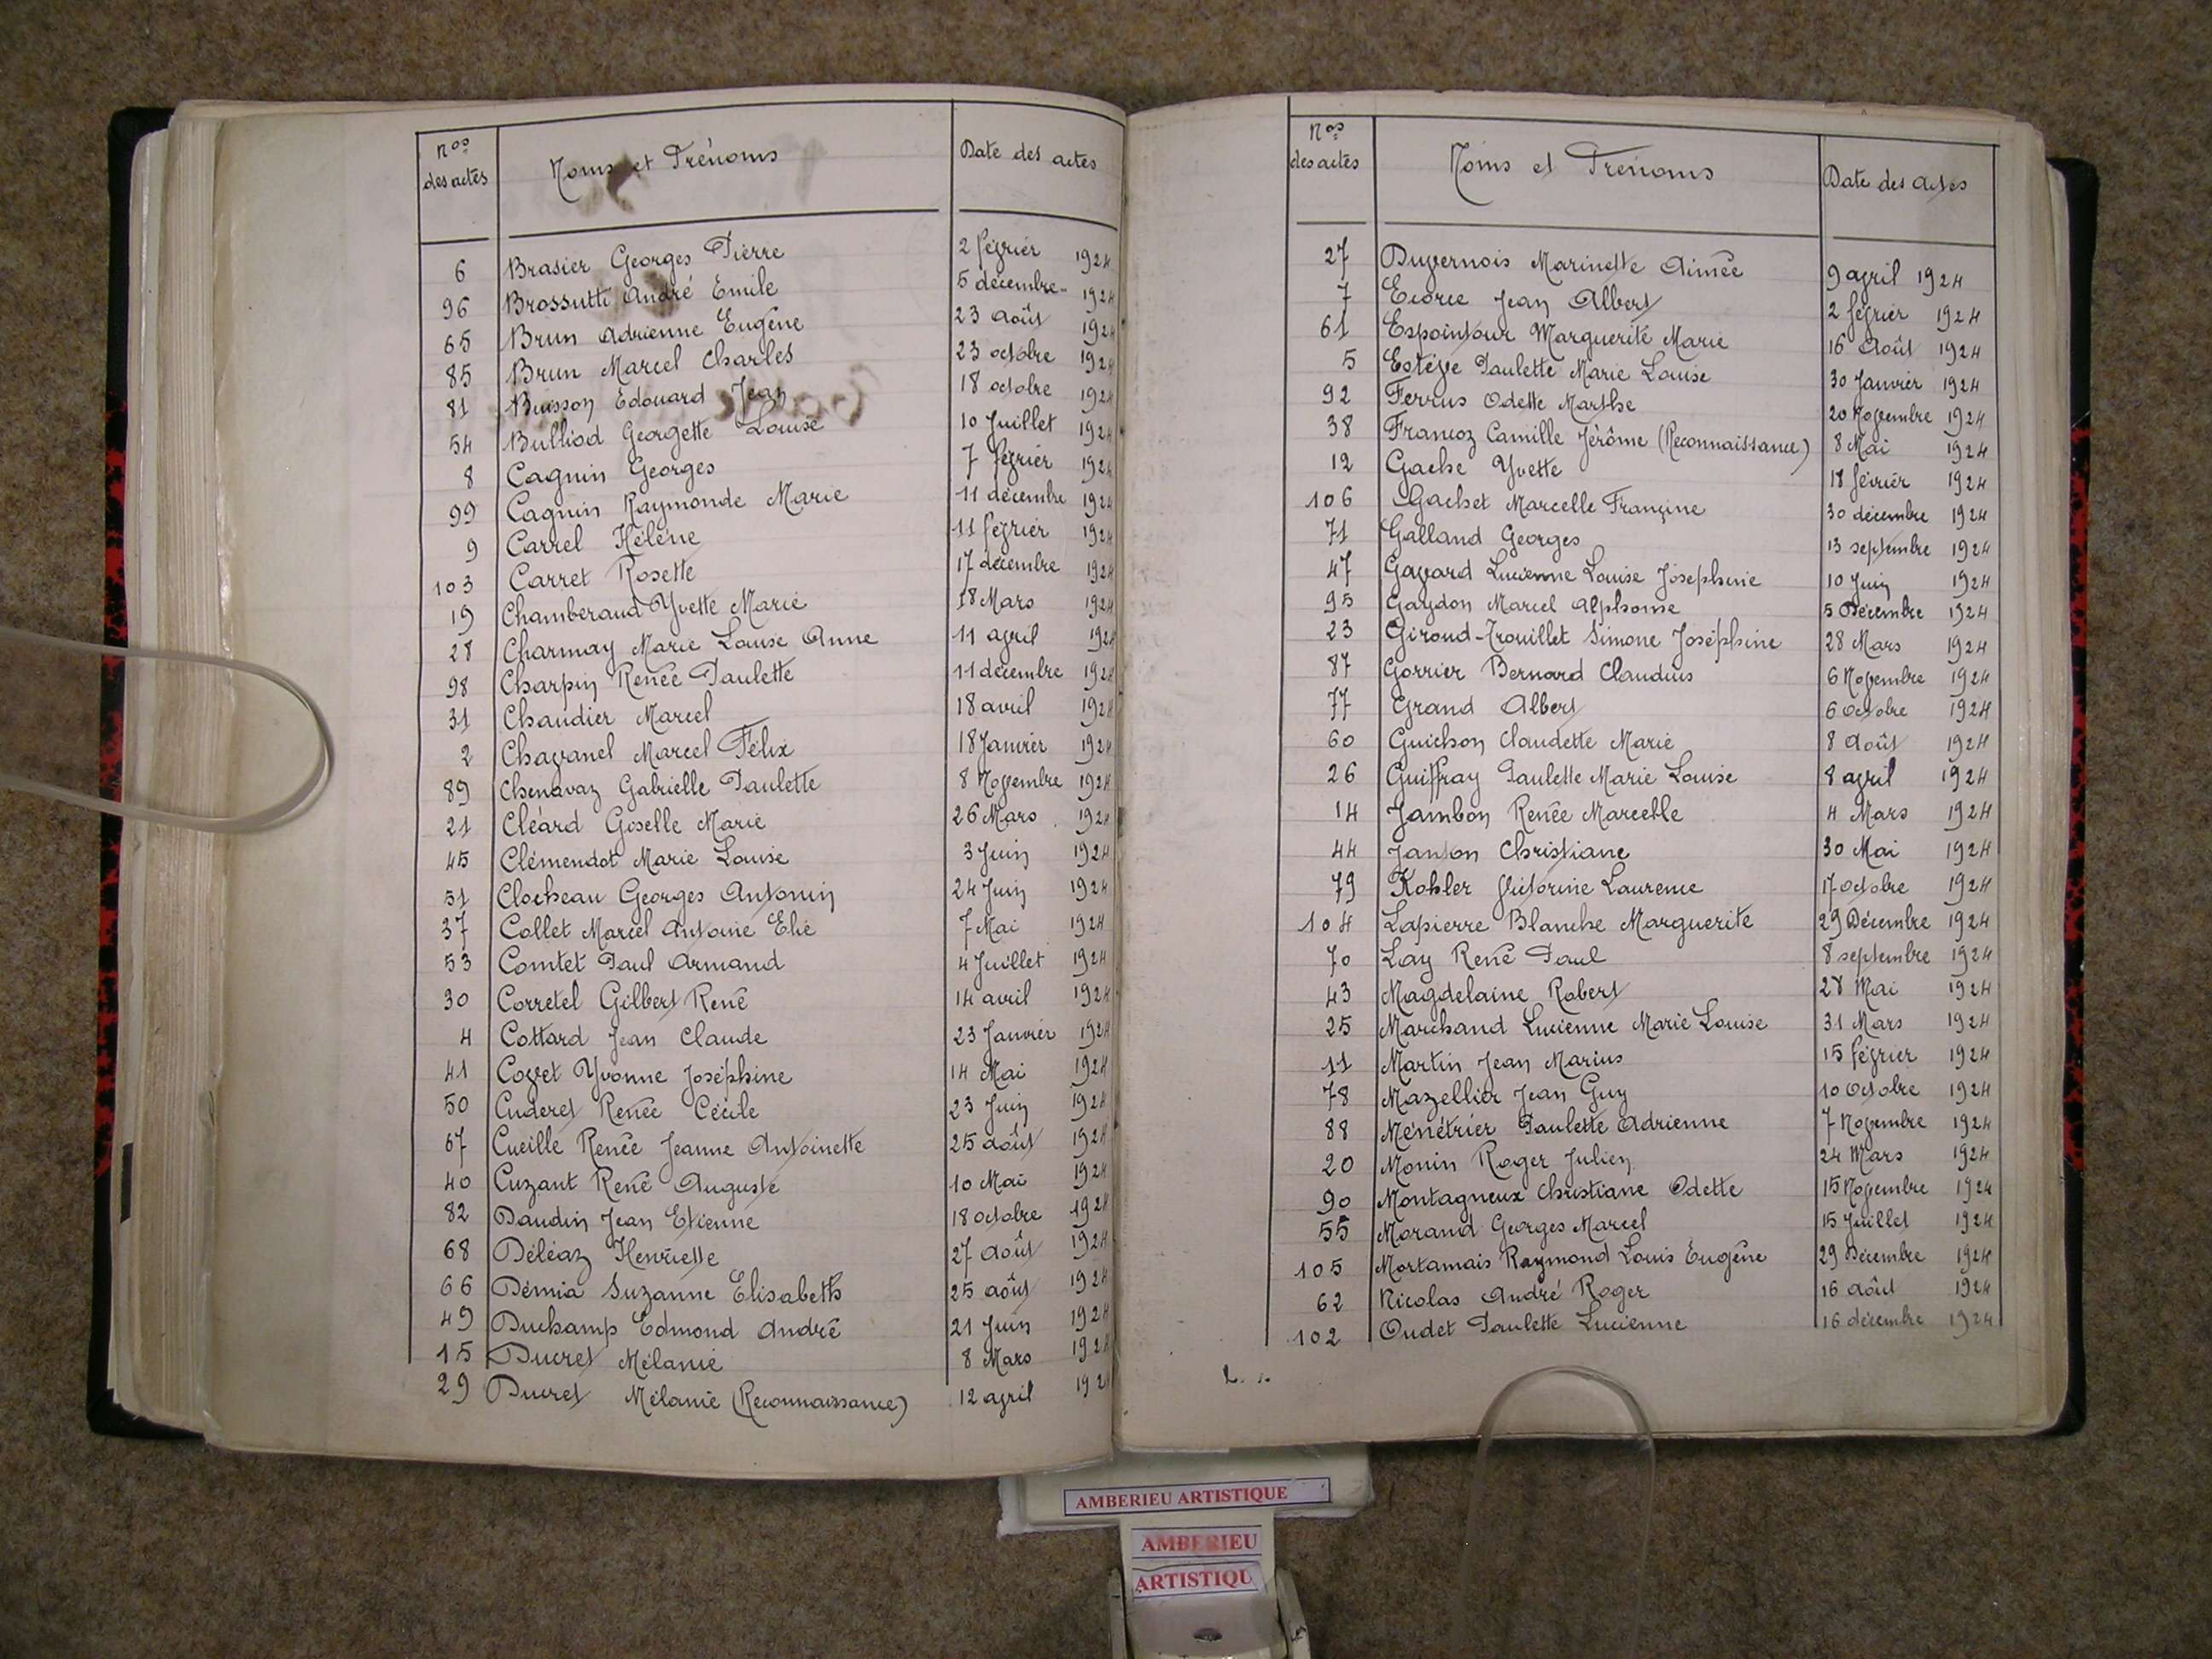 Nos des actes Noms et Prénoms Date des actes
6 Brasier Georges Pierre 2 février 1924
96 Brossutti André Emile 5 décembre 1924
65 Brun Adrienne Eugène 23 août 1924
85 Brun Marcel Charles 23 octobre 1924
81 Buisson Edouard Jean 18 octobre 1924
54 Bulliod Georgette Louise 10 Juillet 1924
8 Cagnin Georges 7 février 1924
99 Cagnin Raymonde Marie 11 décembre 1924
9 Carrel Hélène 11 février 1924
103 Carret Rosette 17 décembre 1924
19 Chamberaud Yvette Marie 18 Mars 1924
28 Charmay Marie Louise Anne 11 avril 1924
98 Charpin Renée Paulette 11 décembre 1924
31 Chaudier Marcel 18 avril 1924
2 Chavanel Marcel Félix 18 Janvier 1924
89 Chenavaz Gabrielle Paulette 8 Novembre 1924
21 Cléard Giselle Marie 26 Mars 1924
45 Clémendot Marie Louise 3 Juin 1924
51 Clocheau Georges Antonin 24 Juin 1924
37 Collet Marcel Antoine Elie 7 Mai 1924
53 Comtet Paul Armand 4 Juillet 1924
30 Corretel Gilbert René 14 avril 1924
4 Cottard Jean Claude 23 Janvier 1924
41 Covet Yvonne Joséphine 14 Mai 1924
50 Cuderet Renée Cécile 23 Juin 1924
67 Cueille Renée Jeanne Antoinette 25 août 1924
40 Cuzant René Auguste 10 Mai 1924
82 Daudin Jean Etienne 18 octobre 1924
68 Déléaz Henriette 27 août 1924
66 Démia Suzanne Elisabeth 25 août 1924
49 Duchamp Edmond André 21 Juin 1924
15 Ducret Mélanie 8 Mars 1924
29 Ducret Mélanie (Reconnaissance) 12 avril 192
Nos des actes Noms et Prénoms Date des actes
27 Duvernois Marinette Aimée 9 avril 1924
7 Ecorce Jean Albert 2 février 1924
61 Espointour Marguerite Marie 16 Août 1924
5 Estève Paulette Marie Louise 30 Janvier 1924
92 Ferrus Odette Marthe 20 Novembre 1924
38 Francoz Camille Jérôme (Reconnaissance) 8 Mai 1924
12 Gache Yvette 18 février 1924
106 Gachet Marcelle Françine 30 décembre 1924
71 Galland Georges 13 septembre 1924
47 Gavard Lucienne Louise Joséphine 10 Juin 1924
95 Gaydon Marcel Alphonse 5 Décembre 1924
23 Giroud-Trouillet Simone Joséphine 28 Mars 1924
87 Gorrier Bernard Claudius 6 Novembre 1924
77 Grand Albert 6 Octobre 1924
60 Guichon Claudette Marie 8 Août 1924
26 Guiffray Paulette Marie Louise 8 avril 1924
14 Jambon Renée Marcelle 4 Mars 1924
44 Janton Christiane 30 Mai 1924
79 Kohler Victorine Laurence 17 octobre 1924
104 Lapierre Blanche Marguerite 29 Décembre 1924
70 Lay René Paul 8 septembre 1924
43 Magdelaine Robert 28 Mai 1924
25 Marchand Lucienne Marie Louise 31 Mars 1924
11 Martin Jean Marius 15 février 1924
78 Mazellier Jean Guy 10 Octobre 1924
88 Ménétrier Paulette Adrienne 7 Novembre 1924
20 Monin Roger Julien 24 Mars 1924
90 Montagneux Christiane Odette 15 Novembre 1924
55 Morand Georges Marcel 15 Juillet 1924
105 Mortamais Raymond Louis Eugène 29 Décembre 1924
62 Nicolas André Roger 16 août 1924
102 Oudet Paulette Lucienne 16 décembre 1924
AMBERIEU ARTISTIQUE
AMBERIEU
ARTISTIQU